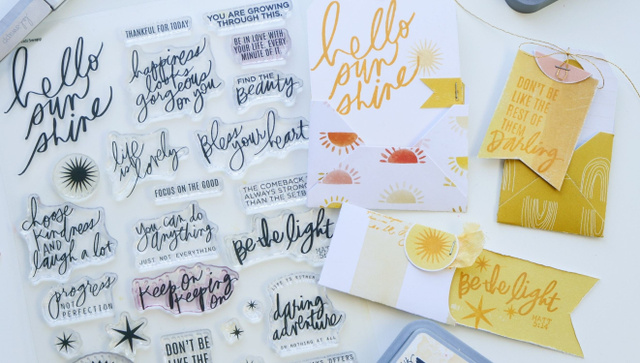 THANKFUL FOR TODAY
YOU ARE GROWING
THROUGH THIS.
hello
sun
shine
happiness
looks
gorgeous
on you
BE IN LOVE WITH
YOUR LIFE. EVERY
MINUTE OF IT.
FIND THE
Beauty
life
is lovely
Bless your heart
FOCUS ON THE GOOD
THE COMEBACK
ALWAYS STRONG
THAN THE SET
choose
kindness
AND
laugh a lot
you can do
anything
JUST NOT EVERYTHING
Be the light
MATT
5:14
progress
NOT
PERFECTION
Keep on
keeping
on
LIFE IS EITHER
daring
adventure
OR NOTHING AT ALL
DON'T BE
LIKE THE
OFFERS
hello
sun
shine
DON'T BE
LIKE THE
REST OF
THEM,
Darling
Be the light
MATT
5:14